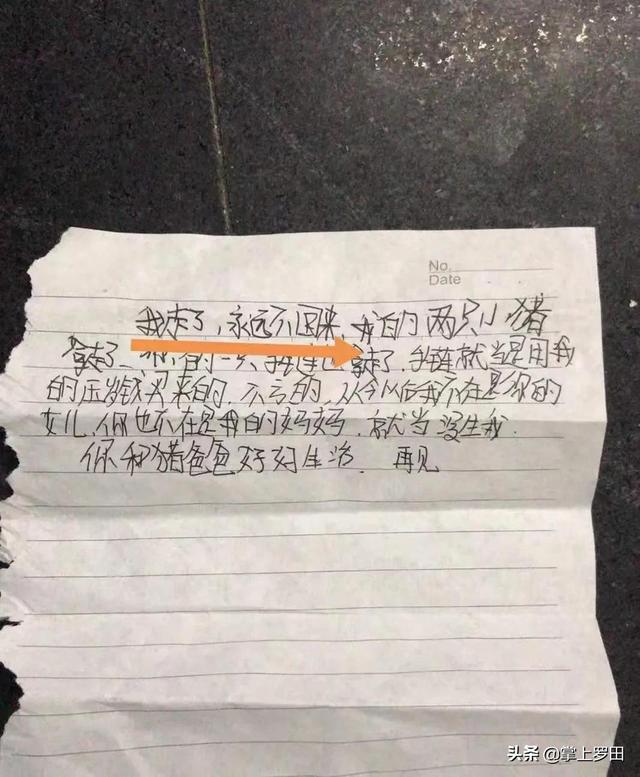 No.
Date
我走了,永远不回来,我的两只小猪
拿走了、 的一只 手链也拿走了,手链就当是用我
的压岁钱买来的,不亏的,从今以后我不在是你的
女儿,你也不在是我的妈妈,就当没生我.
你和猪爸爸好好生活. 再见
头条 @掌上罗田